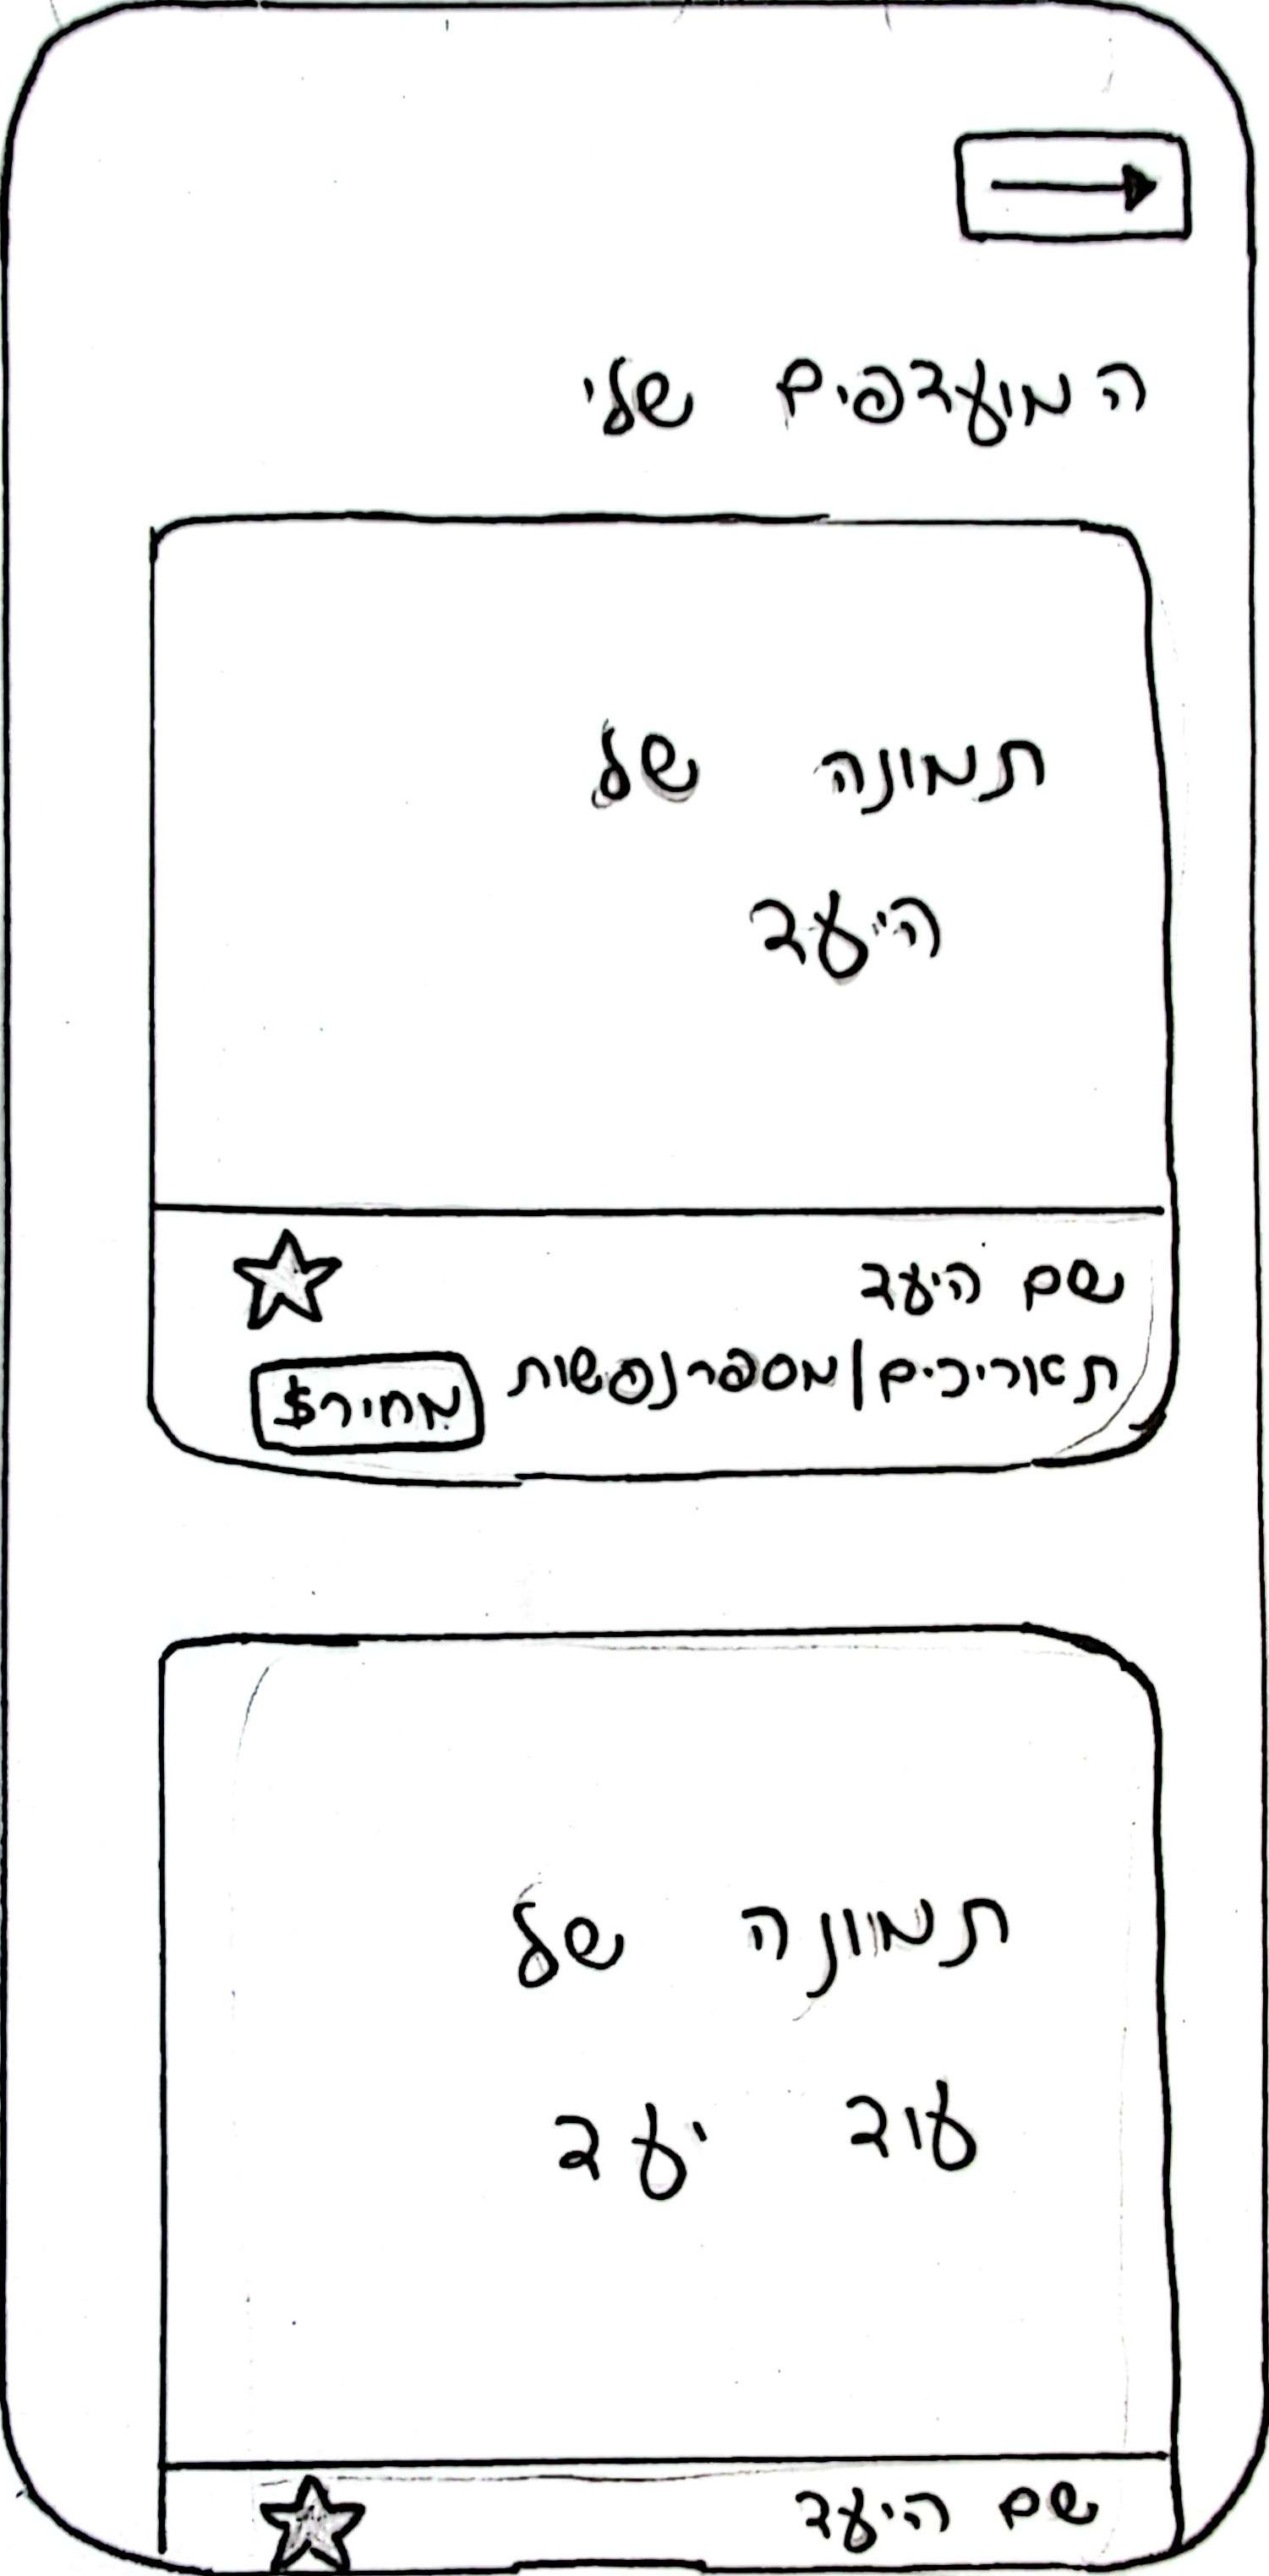 המועדפים שלי
תמונה של
היעד
שם היעד
תאריכים|מספר נפשות
מחיר$
תמונה של
עוד יעד
שם היעד